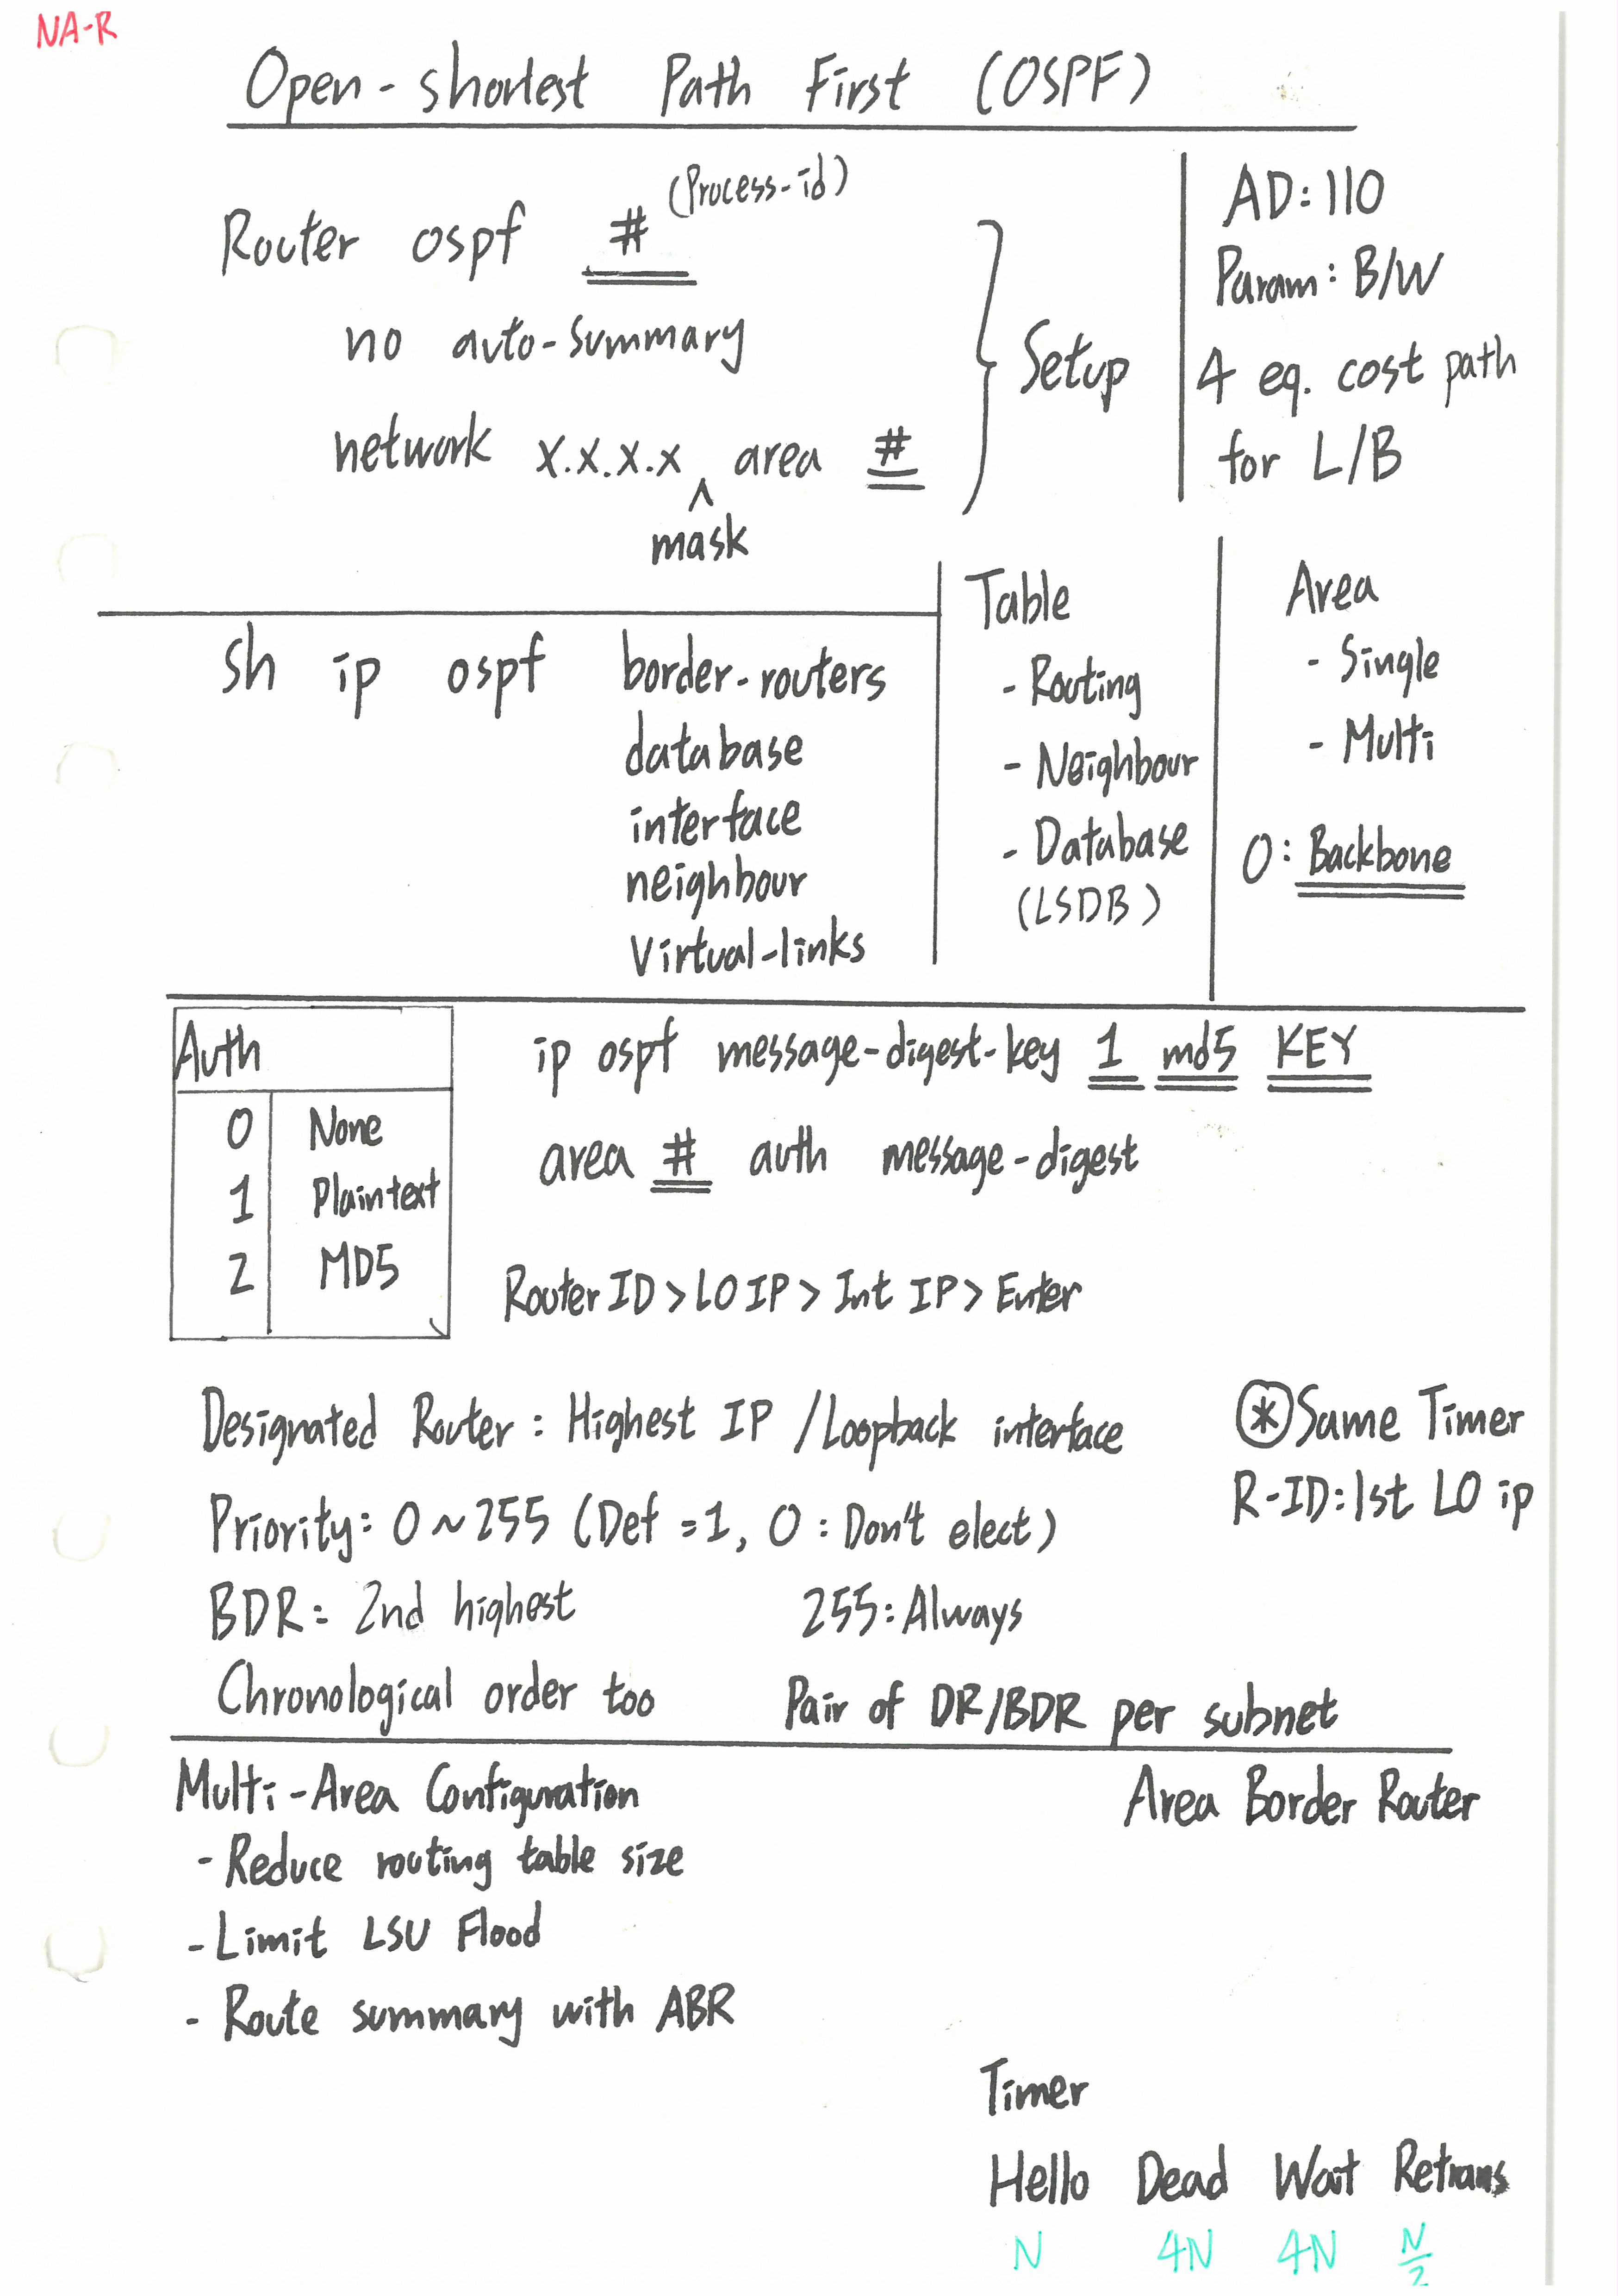 NA-R
Open-shortest Path First (OSPF)
Router ospf # (Process-id)
no auto-summary
network x.x.x.x ^ area #
mask
} Setup
AD: 110
Param: B/W
4 eq. cost path
for L/B
sh ip ospf border-routers
database
interface
neighbour
Virtual-links
Table
- Routing
- Neighbour
- Database
(LSDB)
Area
- Single
- Multi
0: Backbone
Auth
0 None
1 Plaintext
2 MD5
ip ospf message-digest-key 1 md5 KEY
area # auth message-digest
Router ID > LO IP > Int IP > Enter
Designated Router: Highest IP / Loopback interface
Priority: 0 ~ 255 (Def = 1, 0: Don't elect)
BDR = 2nd highest 255: Always
Chronological order too Pair of DR/BDR per subnet
* Same Timer
R-ID: 1st LO ip
Multi-Area Configuration
- Reduce routing table size
- Limit LSU Flood
- Route summary with ABR
Area Border Router
Timer
Hello Dead Wait Retrans
N 4N 4N N/2